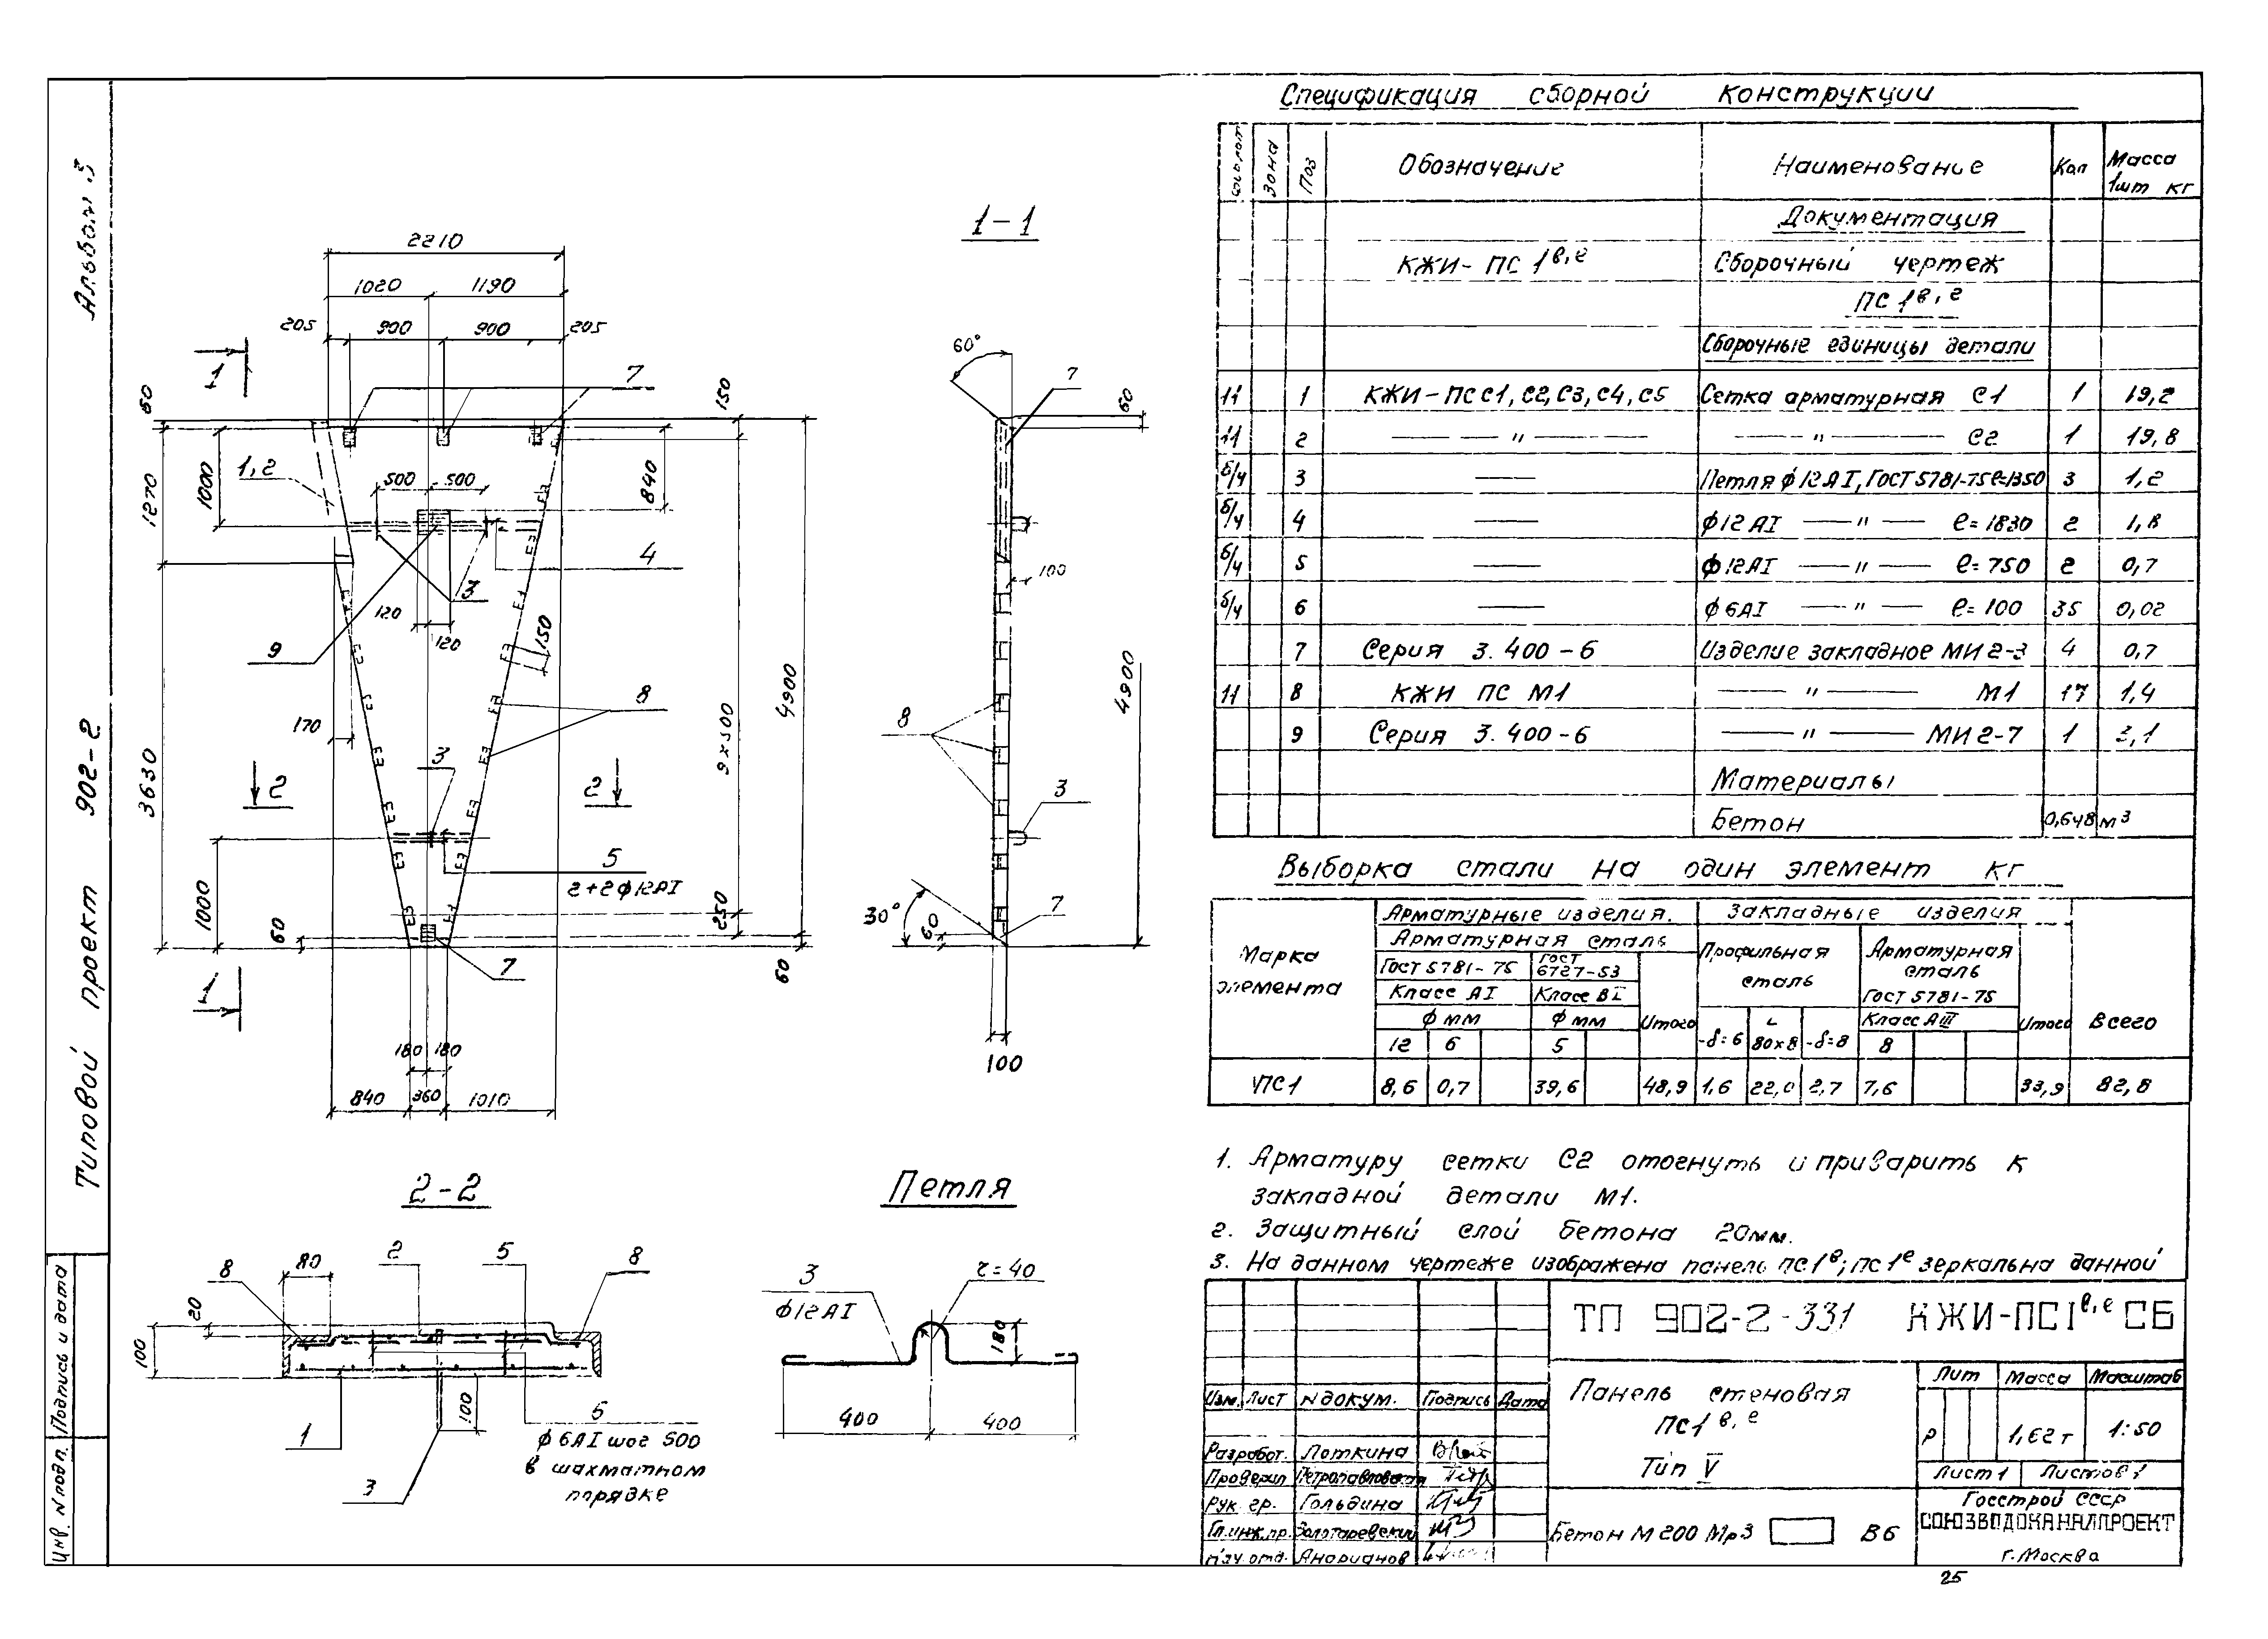 Альбом 5
Типовой проект 902-2
Инв. N подл. Подпись и дата
1-1
2210
1020 1190
205 900 900 205
1
7
150
60
1,2
1000
1270
500 500
840
4
3
120
120
150
9
170
8
3
3630
2 2
9×500
4900
5
2+2ф12АI
1000
60
250
60
7
1
180 180
840 360 1010
60°
7
60
100
8
3
4900
30°
60
7
100
2-2
8 80 2 5 8
20
100
1
100
6
ф6АI шаг 500
в шахматном
порядке
3
Петля
3
ф12АI
r=40
180
400 400
Спецификация сборной конструкции
Зона Поз Обозначение Наименование Кол Масса 1шт кг
Документация
КЖИ- ПС 1в,е Сборочный чертеж
ПС 1в,г
Сборочные единицы детали
11 1 КЖИ-ПС С1, С2, С3, С4, С5 Сетка арматурная С1 1 19,2
11 2 — " — — " — С2 1 19,8
б/ч 3 — Петля ф12АI, Гост 5781-75 ℓ=1350 3 1,2
б/ч 4 — ф12АI — " — ℓ=1830 2 1,8
б/ч 5 — ф12АI — " — ℓ=750 2 0,7
б/ч 6 — ф6АI — " — ℓ=100 35 0,02
7 Серия 3.400-6 Изделие закладное МИ2-3 4 0,7
11 8 КЖИ ПС М1 — " — М1 17 1,4
9 Серия 3.400-6 — " — МИ2-7 1 3,1
Материалы
Бетон 0,648 м3
Выборка стали на один элемент кг
Марка элемента
Арматурные изделия. Закладные изделия
Арматурная сталь
Гост 5781-75 Гост 6727-53
Класс АI Класс ВI
ф мм ф мм Итого
12 6 5
Профильная сталь
-δ=6 ∟80×8 -δ=8
Арматурная сталь Гост 5781-75
Класс АIII
8
Итого Всего
ПС1 8,6 0,7 39,6 48,9 1,6 22,0 2,7 7,6 33,9 82,8
1. Арматуру сетки С2 отогнуть и приварить к
закладной детали М1.
2. Защитный слой бетона 20мм.
3. На данном чертеже изображена панель ПС1в; ПС1е зеркальна данной
ТП 902-2-331 КЖИ-ПС1в,е СБ
Изм. Лист N докум. Подпись Дата
Разработ. Лоткина
Проверил Петропавловская
Рук. гр. Гольдина
Гл.инж.пр. Золотаревский
отд.
Панель стеновая
ПС1 в,е
Тип V
Лит Масса Масштаб
Р 1,62 т 1:50
Лист 1 Листов 1
Бетон М200 Мрз В6
Госстрой СССР
СОЮЗВОДОКАНАЛПРОЕКТ
г. Москва
25